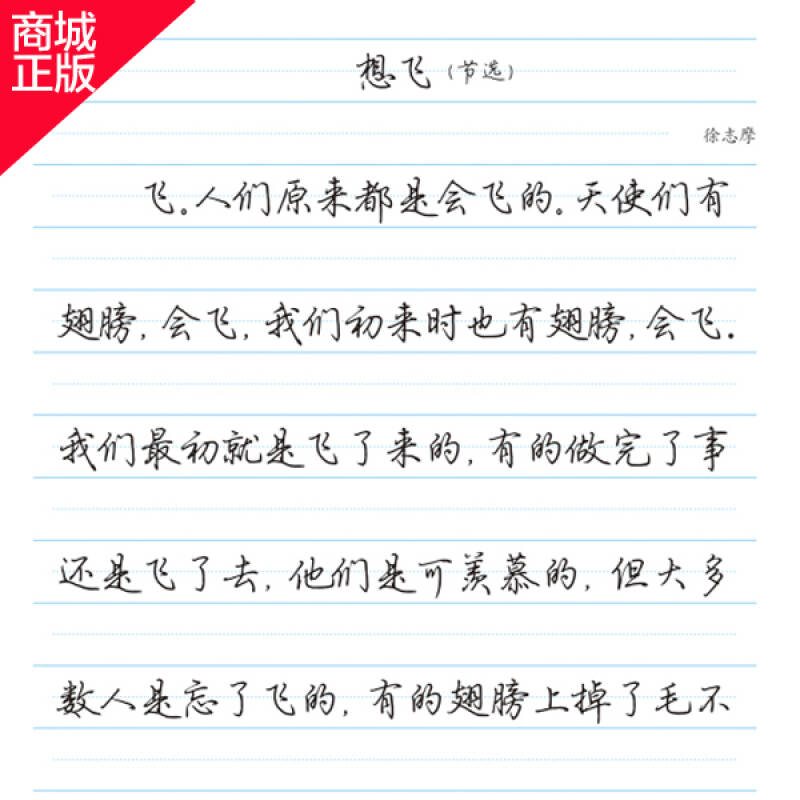 商城
正版
想飞(节选)
徐志摩
飞。人们原来都是会飞的。天使们有
翅膀,会飞,我们初来时也有翅膀,会飞。
我们最初就是飞了来的,有的做完了事
还是飞了去,他们是可羡慕的,但大多
数人是忘了飞的,有的翅膀上掉了毛不